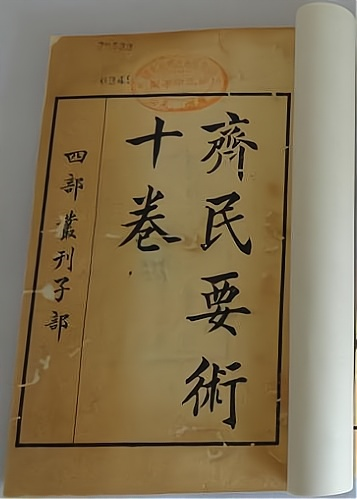 齊民要術
十卷
四部叢刊子部